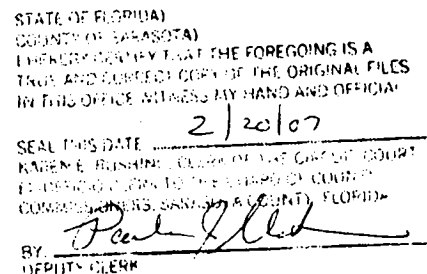 STATE OF FLORIDA)
COUNTY OF SARASOTA)
I HEREBY CERTIFY THAT THE FOREGOING IS A
TRUE AND CORRECT COPY OF THE ORIGINAL FILES
IN THIS OFFICE WITNESS MY HAND AND OFFICIAL
SEAL THIS DATE 2/20/07
KAREN E. RUSHING, CLERK OF THE CIRCUIT COURT
EX-OFFICIO CLERK TO THE BOARD OF COUNTY
COMMISSIONERS, SARASOTA COUNTY, FLORIDA
BY
DEPUTY CLERK